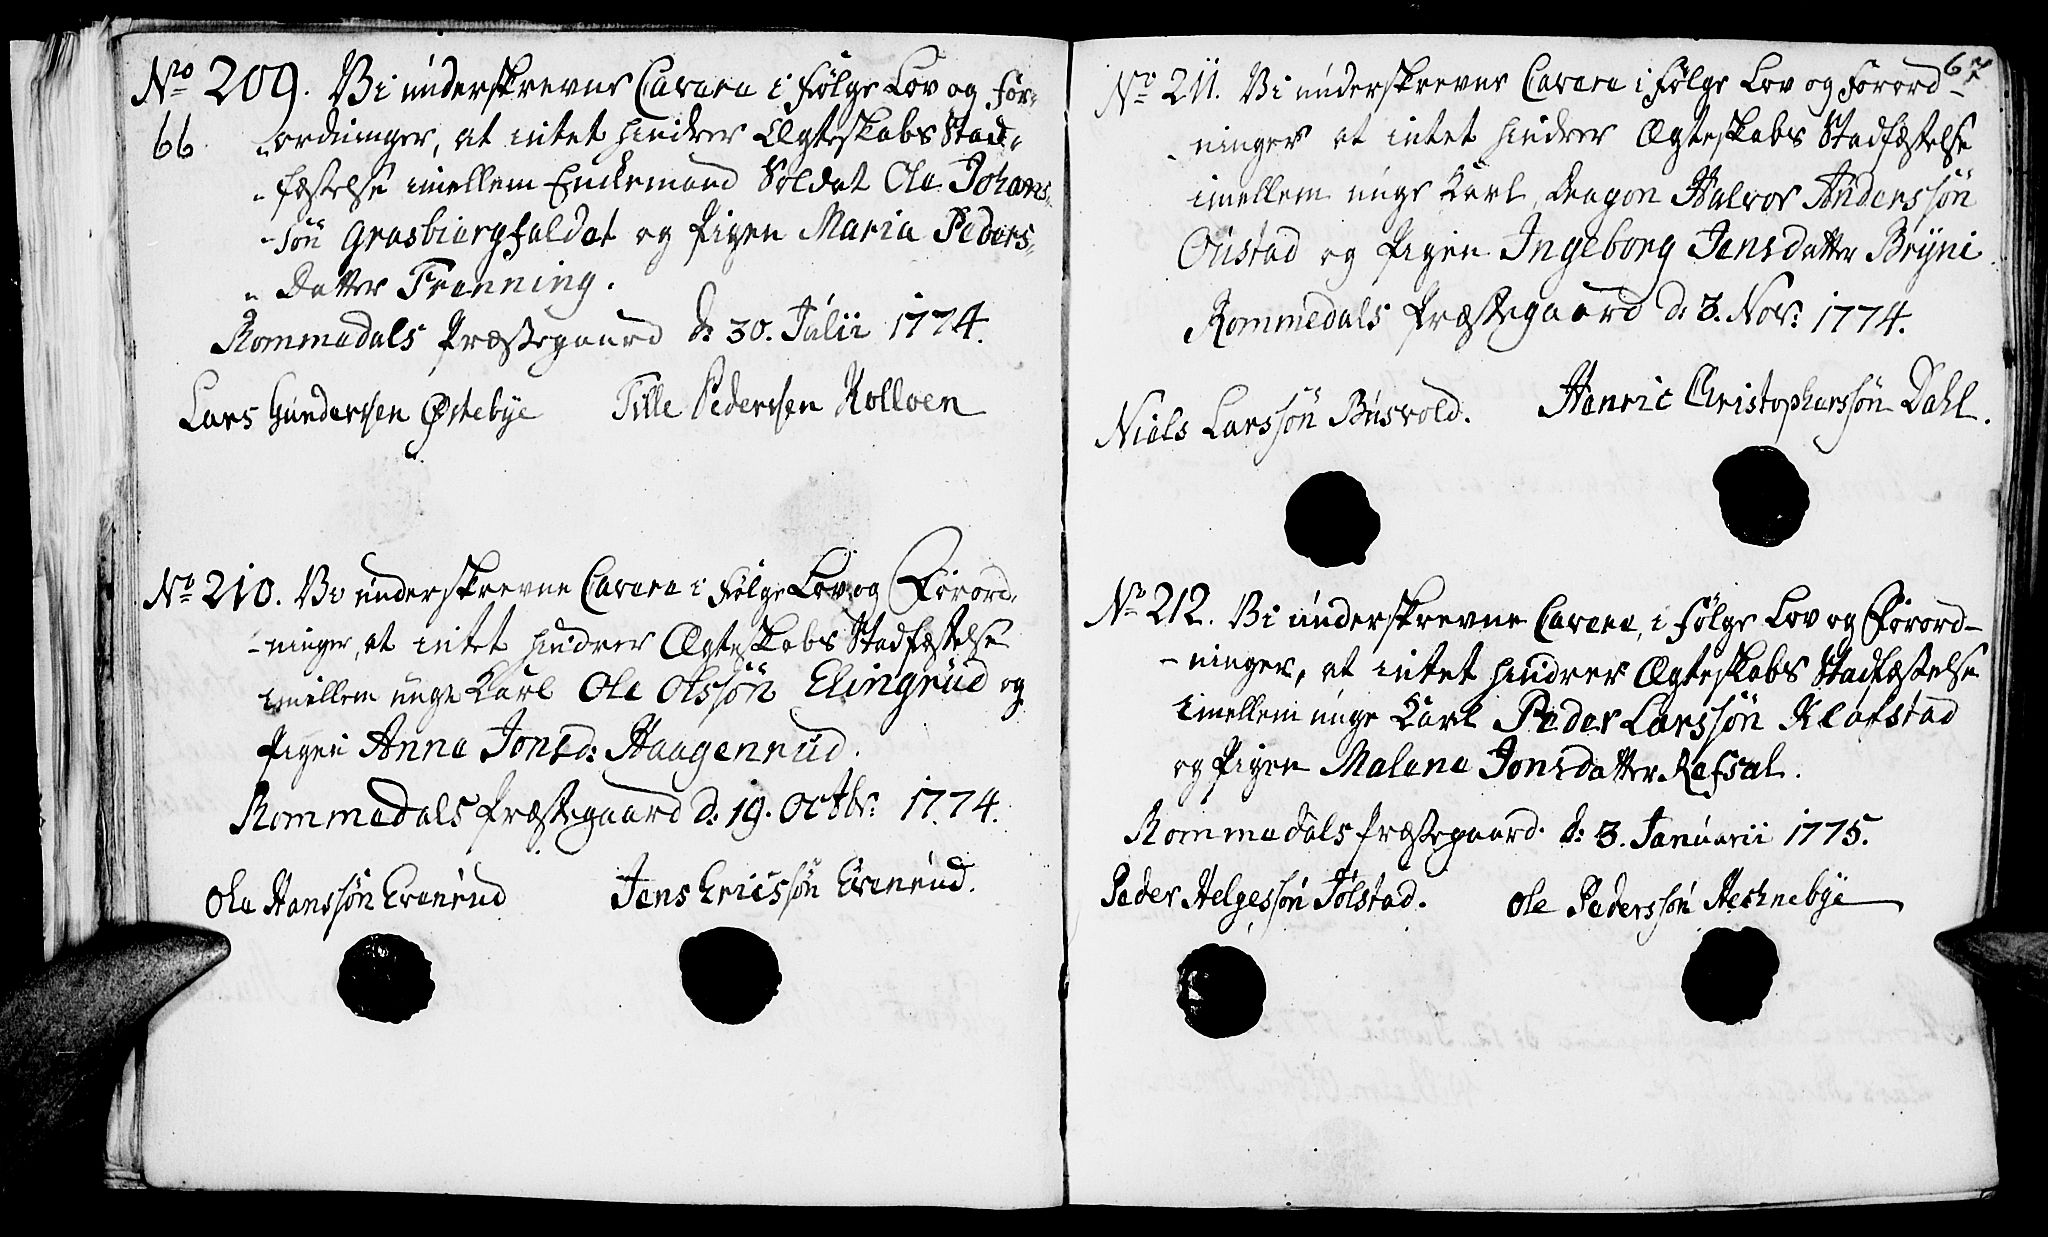 No 209. Vi underskrevne Cavere i Følge Lov og For-
66
ordninger, at intet hindrer Ægteskabs Stad-
fæstelse imellem Enckemand Soldat Ole Johans-
søn Grasbiergfaldet og Pigen Maria Peders-
Datter Frenning.
Rommedals Præstegaard d: 30. Julii 1774.
Lars Gundersen Østebye Tille Pedersen Kolloen
No 210. Vi underskrevne Cavere i Følge Lov og Forord-
-ninger, at intet hindrer Ægteskabs Stadfæstelse
imellem unge Karl Ole Olssøn Elingrud og
Pigen Anne Jonsd: Haagenrud.
Rommedals Præstegaard d: 19. Octbr: 1774.
Ole Hanssøn Evenrud Jens Ericssøn Evenrud.
67
No 211. Vi underskrevne Cavere i Følge Lov og Forord-
-ninger at intet hindrer Ægteskabs Stadfæstelse
imellem unge Karl, Dragon Halvor Anderssøn
Oustad og Pigen Ingeborg Jensdatter Bryni.
Rommedals Præstegaard d: 3. Nov: 1774.
Niels Larssøn Busvold. Henric Christopherssøn Dahl.
No 212. Vi underskrevne Cavere, i Følge Lov og Forord-
-ninger, at intet hindrer Ægteskabs Stadfæstelse
imellem unge Karl Peder Larssøn Klofstad
og Pigen Malene Jonsdatter Refsal.
Rommedals Præstegaard. d: 3. Januarii 1775.
Peder Helgessøn Jølstad. Ole Pederssøn Hechnebye